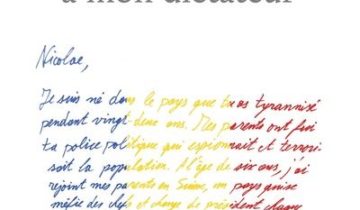 à mon dictateur
Nicolae,
Je suis né dans le pays que tu as tyrannisé
pendant vingt-deux ans. Mes parents ont fui
ta police politique qui espionnait et terrori
sait la population. À l'âge de six ans, j'ai
rejoint mes parents en Suisse, un pays qui se
méfie des chefs et change de président chaque